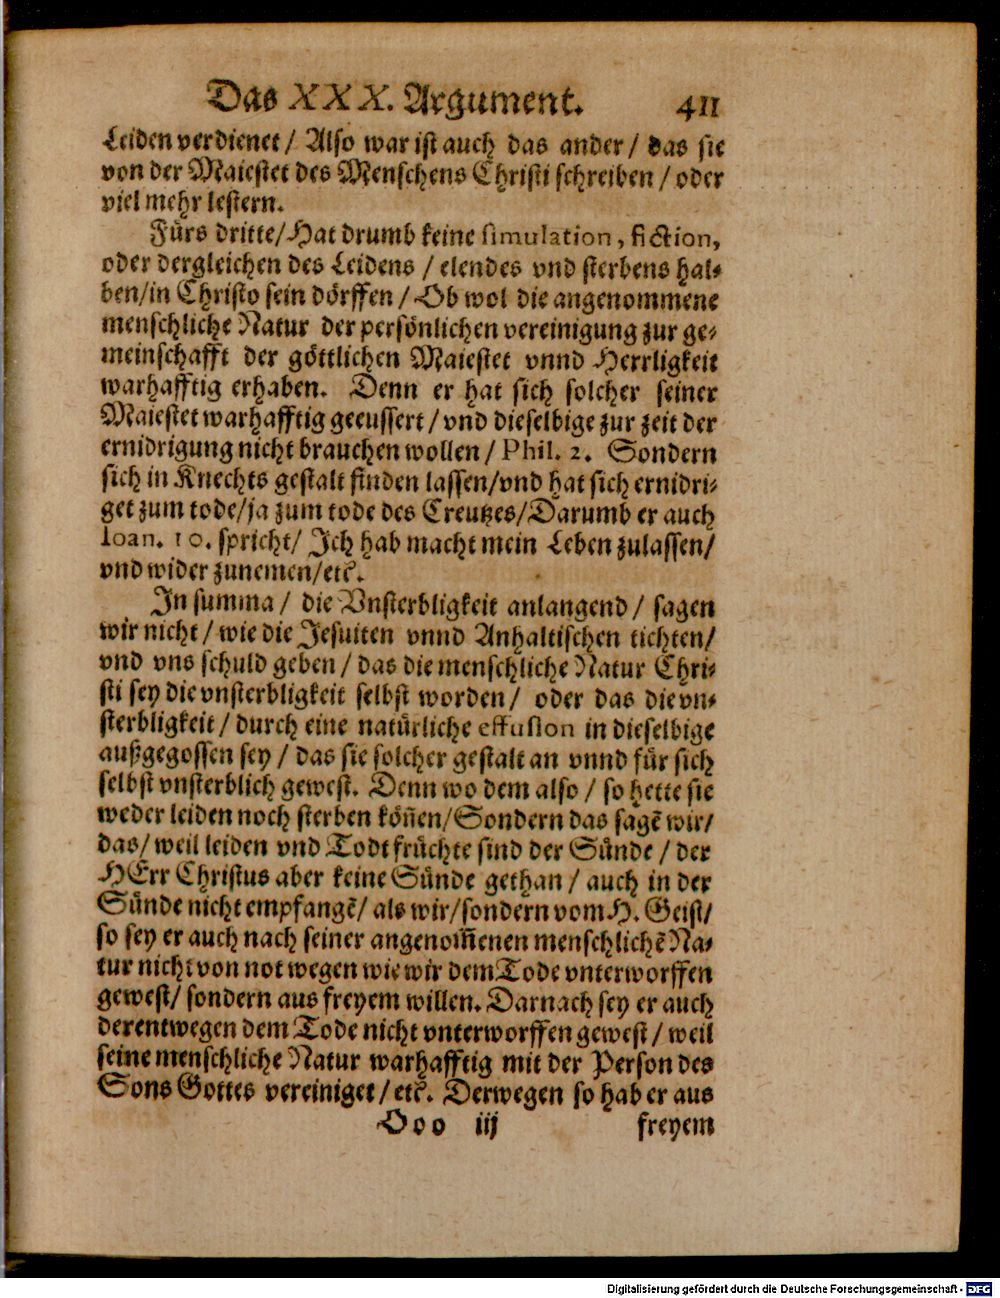 Das XXX. Argument. 411
Leiden verdienet / Also war ist auch das ander / das sie
von der Maiestet des Menschens Christi schreiben / oder
viel mehr lestern.
Fürs dritte/Hat drumb keine simulation, fiction,
oder dergleichen des Leidens / elendes vnd sterbens hal-
ben/in Christo sein dörffen / Ob wol die angenommene
menschliche Natur der persönlichen vereinigung zur ge-
meinschafft der göttlichen Maiestet vnnd Herrligkeit
warhafftig erhaben. Denn er hat sich solcher seiner
Maiestet warhafftig geeussert / vnd dieselbige zur zeit der
ernidrigung nicht brauchen wollen / Phil. 2. Sondern
sich in Knechts gestalt finden lassen/vnd hat sich ernidri-
get zum tode/ja zum tode des Creutzes/Darumb er auch
Ioan. 10. spricht/ Ich hab macht mein Leben zulassen/
vnd wider zunemen/etc.
In summa / die Vnsterbligkeit anlangend / sagen
wir nicht / wie die Jesuiten vnnd Anhaltischen tichten/
vnd vns schuld geben / das die menschliche Natur Chri-
sti sey die vnsterbligkeit selbst worden / oder das die vn-
sterbligkeit / durch eine natürliche effusion in dieselbige
außgegossen sey / das sie solcher gestalt an vnnd für sich
selbst vnsterblich gewest. Denn wo dem also / so hette sie
weder leiden noch sterben köñen/Sondern das sagē wir/
das/ weil leiden vnd Todt früchte sind der Sünde / der
HErr Christus aber keine Sünde gethan / auch in der
Sünde nicht empfangē/ als wir/sondern vom H. Geist/
so sey er auch nach seiner angenom̄enen menschlichē Na-
tur nicht von not wegen wie wir dem Tode vnterworffen
gewest/ sondern aus freyem willen. Darnach sey er auch
derentwegen dem Tode nicht vnterworffen gewest / weil
seine menschliche Natur warhafftig mit der Person des
Sons Gottes vereiniget / etc. Derwegen so hab er aus
Ooo iij freyem
Digitalisierung gefördert durch die Deutsche Forschungsgemeinschaft - DFG